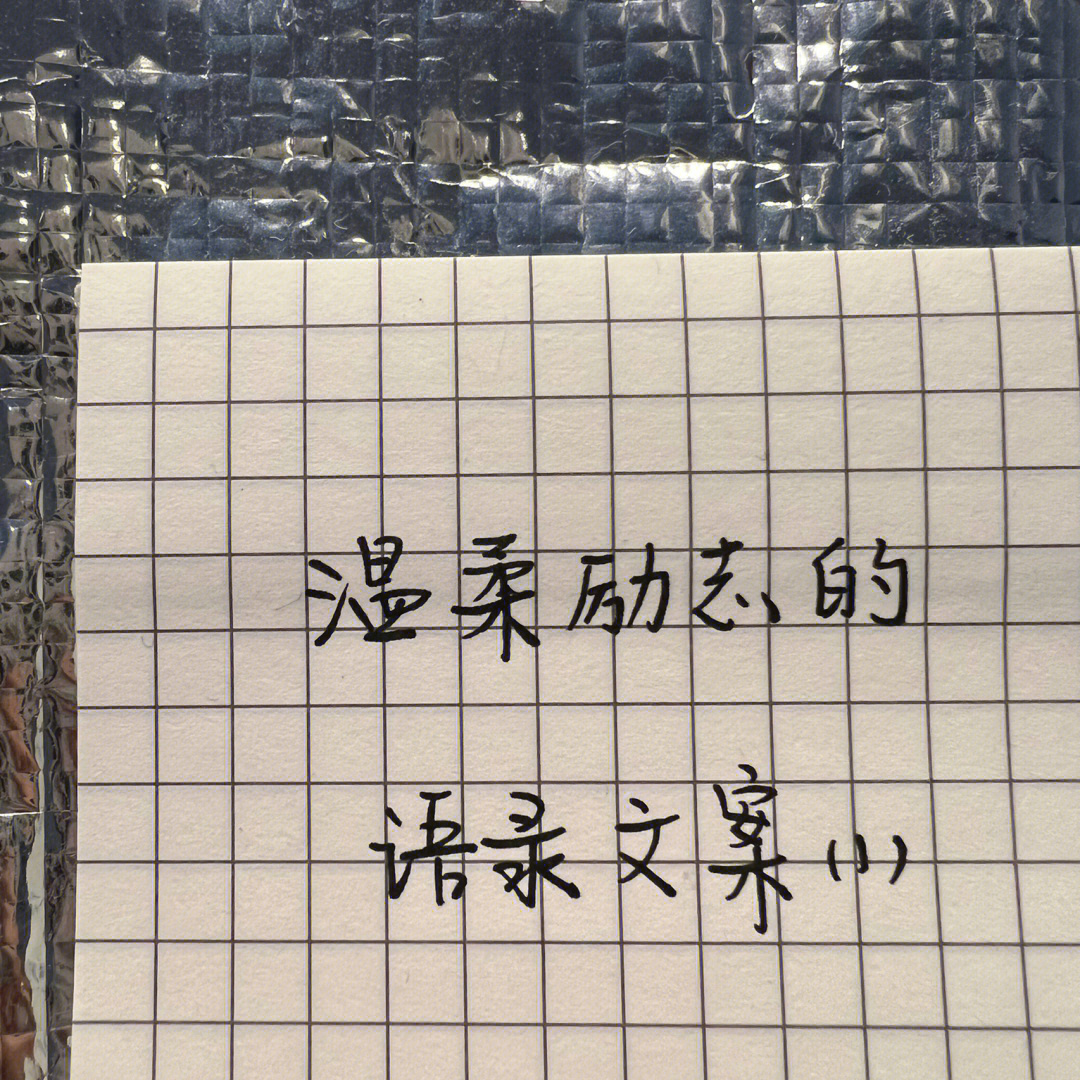 温柔励志的
语录文案(1)